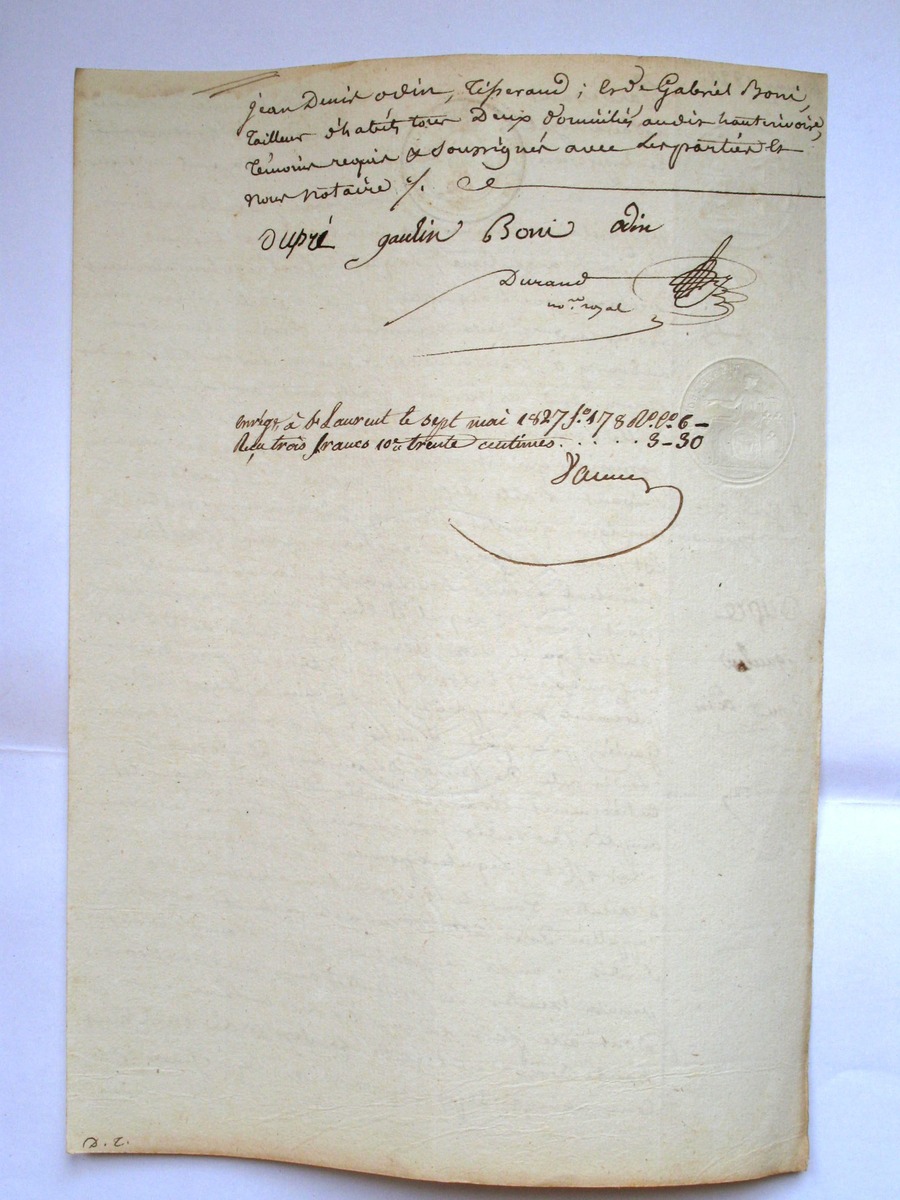 jean Denis odin, Tisserand; et Sr Gabriel Boni,
tailleur d'habits tous Deux domiciliés audit hautrivoire,
témoins requis & Soussignés avec Les parties et
nous notaire ⁒.
Dupré gaulin Boni odin
Durand
nore. royal
enregt. à St Laurent le sept mai 1827 fo. 178 Ro. Co. 6 –
Reçu trois francs 10e trente centimes . . . . . . 3–30
D. T.